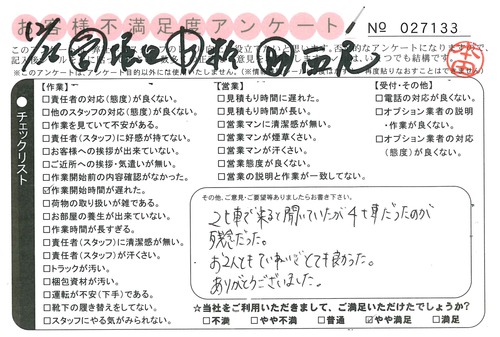 お客様不満足度アンケート
№ 027133
チェックリスト
【作業】
□責任者の対応(態度)が良くない。
□他のスタッフの対応(態度)が良くない。
□作業を見ていて不安がある。
□責任者(スタッフ)に好感が持てない。
□お客様への挨拶が出来ていない。
□ご近所への挨拶・気遣いが無い。
□作業開始前の内容確認がなかった。
☑作業開始時間が遅れた。
□荷物の取り扱いが雑である。
□お部屋の養生が出来ていない。
□作業時間が長すぎる。
□責任者(スタッフ)に清潔感が無い。
□責任者(スタッフ)が汗くさい。
□トラックが汚い。
□梱包資材が汚い。
□運転が不安(下手)である。
□靴下の履き替えをしてない。
□スタッフにやる気がみられない。
【営業】
□見積もり時間に遅れた。
□見積もり時間が長い。
□営業マンに清潔感が無い。
□営業マンが煙草くさい。
□営業マンが汗くさい。
□営業態度が良くない。
□営業の説明と作業が一致してない。
【受付・その他】
□電話の対応が良くない。
□オプション業者の説明
・作業が良くない。
□オプション業者の対応
(態度)が良くない。
その他、ご意見・ご要望等ありましたらお書き下さい。
2t車で来ると聞いていたが4t車だったのが
残念だった。
お2人ともていねいでとても良かった。
ありがとうございました。
☆当社をご利用いただきまして、ご満足いただけたでしょうか?
□不満 □やや不満 □普通 ☑やや満足 □満足